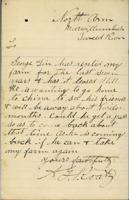 North Arm
Murwillumbah
Tweed River
George Sin has rented my
farm for the last seven
years & has it still
He is wanting to go home
to China to see his friends
& will be away about twelve
months. Could he get a pass
so as to come back about
that time as he is coming
back if he can & take
my farm again
Yours faithfully